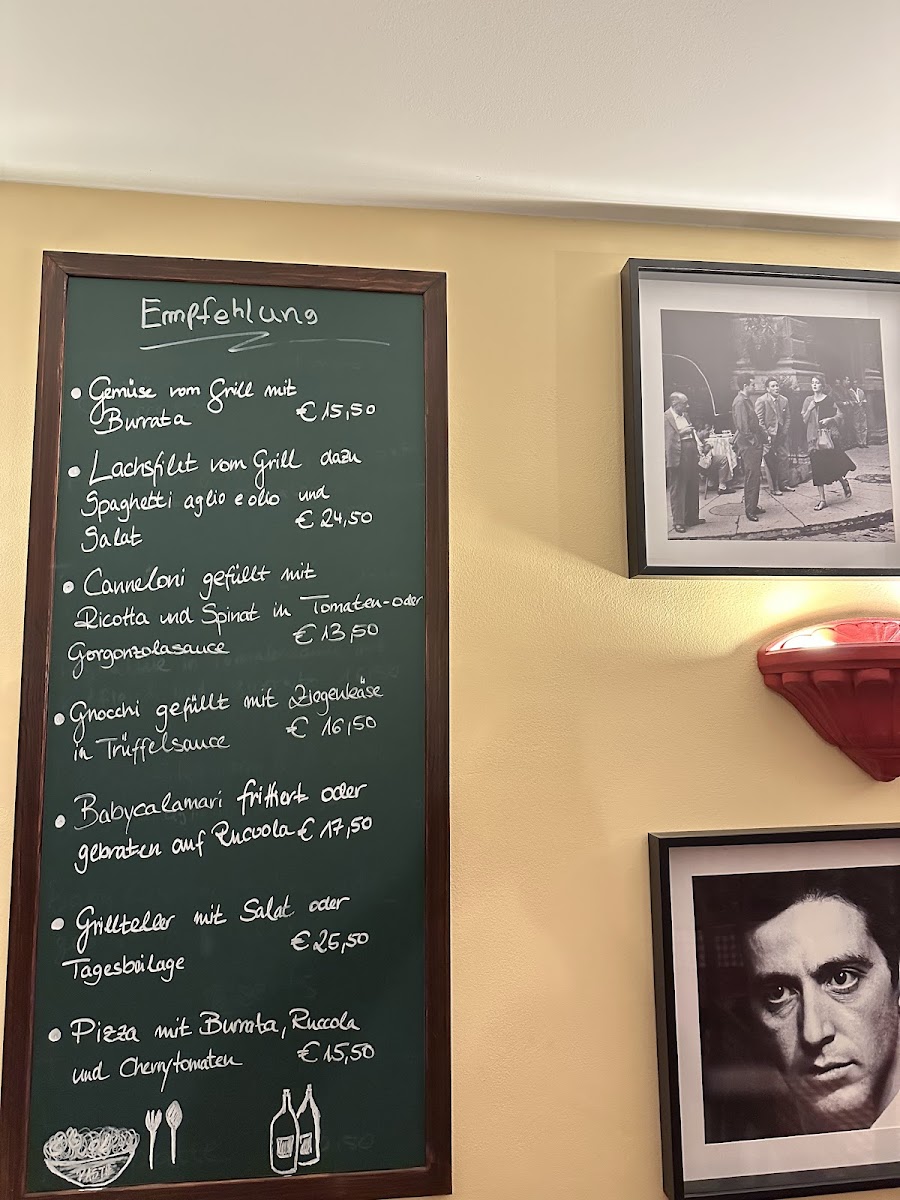 Empfehlung
• Gemüse vom Grill mit
Burrata € 15,50
• Lachsfilet vom Grill dazu
Spaghetti aglio e olio und
€ 24,50
Salat
• Canneloni gefüllt mit
Ricotta und Spinat in Tomaten-oder
€ 13,50
Gorgonzolasauce
• Gnocchi gefüllt mit Ziegenkäse
€ 16,50
in Trüffelsauce
• Babycalamari frittiert oder
gebraten auf Ruccola € 17,50
• Grillteller mit Salat oder
€ 25,50
Tagesbeilage
• Pizza mit Burrata, Ruccola
und Cherrytomaten € 15,50